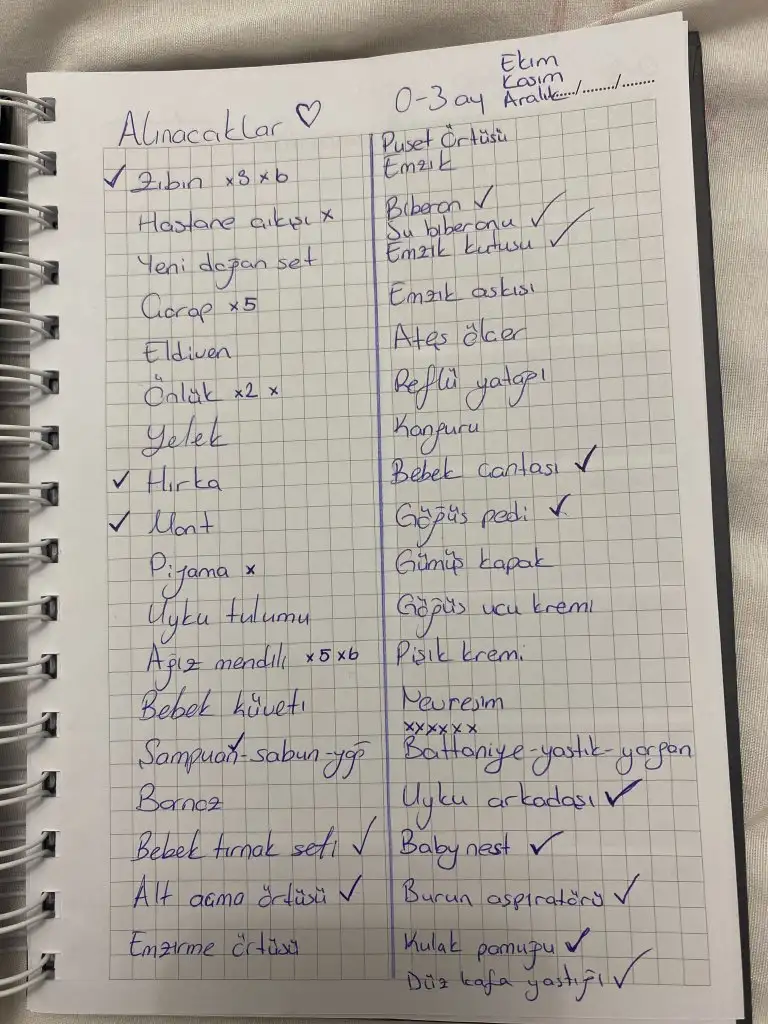 Ekim
Kasım
Aralık..../......../........
0-3 ay
Alınacaklar ♡
✓ Zıbın x3 x6
Hastane çıkışı x
Yeni doğan set
Çorap x5
Eldiven
Önlük x2 x
Yelek
✓ Hırka
✓ Mont
Pijama x
Uyku tulumu
Ağız mendili x5 x6
Bebek küveti
Şampuan✓-sabun-yağ
Bornoz
Bebek tırnak seti ✓
Alt açma örtüsü ✓
Emzirme örtüsü
Puset Örtüsü
Emzik
Biberon ✓
Su biberonu ✓
Emzik kutusu ✓
Emzik askısı
Ateş ölçer
Reflü yatağı
Kanguru
Bebek çantası ✓
Göğüs pedi ✓
Gümüş kapak
Göğüs ucu kremi
Pişik kremi
Nevresim
xxxxxx
Battaniye-yastık-yorgan
Uyku arkadaşı ✓
Babynest ✓
Burun aspiratörü ✓
Kulak pamuğu ✓
Düz kafa yastığı ✓